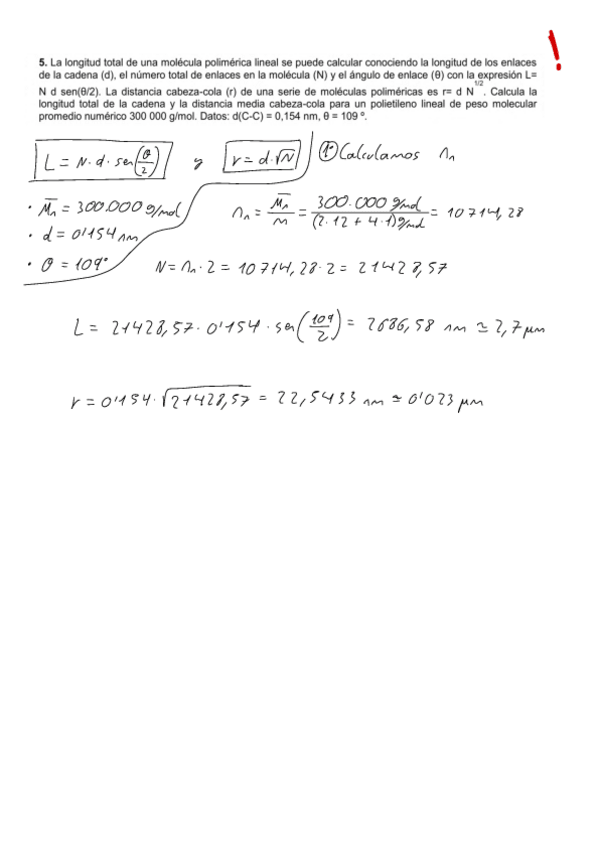 !
5. La longitud total de una molécula polimérica lineal se puede calcular conociendo la longitud de los enlaces
de la cadena (d), el número total de enlaces en la molécula (N) y el ángulo de enlace (θ) con la expresión L=
N d sen(θ/2). La distancia cabeza-cola (r) de una serie de moléculas poliméricas es r= d N^1/2. Calcula la
longitud total de la cadena y la distancia media cabeza-cola para un polietileno lineal de peso molecular
promedio numérico 300 000 g/mol. Datos: d(C-C) = 0,154 nm, θ = 109 º.
L = N·d·sen(θ/2) y r = d·√N ① Calculamos nn
· M̅n = 300.000 g/mol
nn = M̅n/m = 300.000 g/mol / (2·12 + 4·1) g/mol = 10714,28
· d = 0'154 nm
· θ = 109° N = nn·2 = 10714,28·2 = 21428,57
L = 21428,57·0'154·sen(109/2) = 2686,58 nm ≃ 2,7 μm
r = 0'154·√21428,57 = 22,5433 nm ≃ 0'023 μm